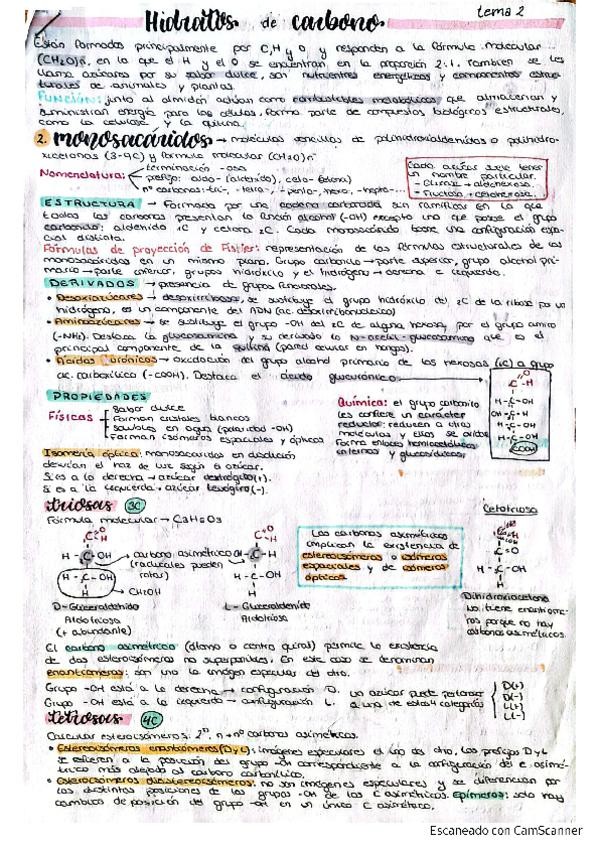 Hidratos de carbono
tema 2
Están formados principalmente por C, H y O, y responden a la fórmula molecular
(CH2O)n, en la que el H y el O se encuentran en la proporción 2:1. También se les
llama azúcares por su sabor dulce, son nutrientes energéticos y componentes estruc-
turales de animales y plantas.
Función: junto al almidón actúan como combustibles metabólicos que almacenan y
suministran energía para las células, forma parte de compuestos biológicos estructurales,
como la celulosa y la quitina.
2. monosacáridos → moléculas sencillas de polihidroxialdehídos o polihidro-
xicetonas (3-9C) y fórmula molecular (CH2O)n
Nomenclatura:
terminación -osa
prefijo: aldo- (aldehído), ceto- (cetona)
nº carbonos: tri-, tetra-, penta-, hexo-, hepto-...
Cada azúcar suele tener
un nombre particular.
- Glucosa → aldohexosa.
- Fructosa → cetohexosa.
ESTRUCTURA → Formados por una cadena carbonada sin ramificar en la que
todos los carbonos presentan la función alcohol (-OH) excepto uno que posee el grupo
carbonilo: aldehído 1C y cetona 2C. Cada monosacárido posee una configuración espa-
cial distinta.
Fórmulas de proyección de Fisher: representación de las fórmulas estructurales de los
monosacáridos en un mismo plano. Grupo carbonilo → parte superior, grupo alcohol pri-
mario → parte inferior, grupos hidroxilo y el hidrógeno → derecha e izquierda.
DERIVADOS → presencia de grupos funcionales.
• Desoxiazúcares → desoxirribosa, se sustituye el grupo hidróxilo del 2C de la ribosa por un
hidrógeno, es un componente del ADN (ac. desoxirribonucleico)
• Aminoazúcares → se sustituye el grupo -OH del 2C de alguna hexosa, por el grupo amino
(-NH2). Destaca la glucosamina y su derivado la N-acetil-glucosamina que es el
principal componente de la quitina (pared celular en hongos).
• Ácidos urónicos → oxidación del grupo alcohol primario de las hexosas (6C) a grupo
ac. carboxílico (-COOH). Destaca el ácido glucurónico.
O
C-H
H-C-OH
OH-C-H
H-C-OH
H-C-OH
COOH
PROPIEDADES
Físicas
Sabor dulce
Forman cristales blancos
Solubles en agua (polaridad -OH)
Forman isómeros espaciales y ópticos
Química: el grupo carbonilo
les confiere un carácter
reductor: reducen a otras
moléculas y ellos se oxidan
Forma enlaces hemiacetálicos
internos y glucosídicos
Isomería óptica: monosacáridos en disolución
desvían el haz de luz según el azúcar.
Si es a la derecha → azúcar dextrógiro (+).
Si es a la izquierda → azúcar levógiro (-).
triosas 3C
Fórmula molecular → C3H6O3
C
O
H
H - C - OH
H - C - OH
H
→ carbono asimétrico
(radicales pueden
rotar)
→ CH2OH
D-Gliceraldehído
Aldotriosa
(+ abundante)
C
O
H
OH - C - H
H - C - OH
H
L-Gliceraldehído
Aldotriosa
Los carbonos asimétricos
implican la existencia de
estereoisómeros o isómeros
espaciales y de isómeros
ópticos.
Cetotriosa
C=O
H-C-OH
H
Dihidroxiacetona
No tiene enantióme-
ros porque no hay
carbonos asimétricos.
El carbono asimétrico (átomo o centro quiral) permite la existencia
de dos estereoisómeros no superponibles. En este caso se denominan
enantiómeros: son uno la imagen especular del otro.
Grupo -OH está a la derecha → configuración D.
Grupo -OH está a la izquierda → configuración L.
un azúcar puede pertenecer
a una de estas 4 categorías
D(+)
D(-)
L(+)
L(-)
tetrosas 4C
Calcular estereoisómeros: 2ⁿ, n → nº carbonos asimétricos.
• Estereoisómeros enantiómeros (D y L): imágenes especulares el uno del otro, los prefijos D y L
se refieren a la posición del grupo -OH correspondiente a la configuración del c. asimé-
trico más alejado al carbono carbonílico.
• Estereoisómeros diastereoisómeros: no son imágenes especulares y se diferencian por
las distintas posiciones de los grupos -OH de los C asimétricos. Epímeros: solo hay
cambios de posición del grupo -OH en un único C asimétrico.
Escaneado con CamScanner